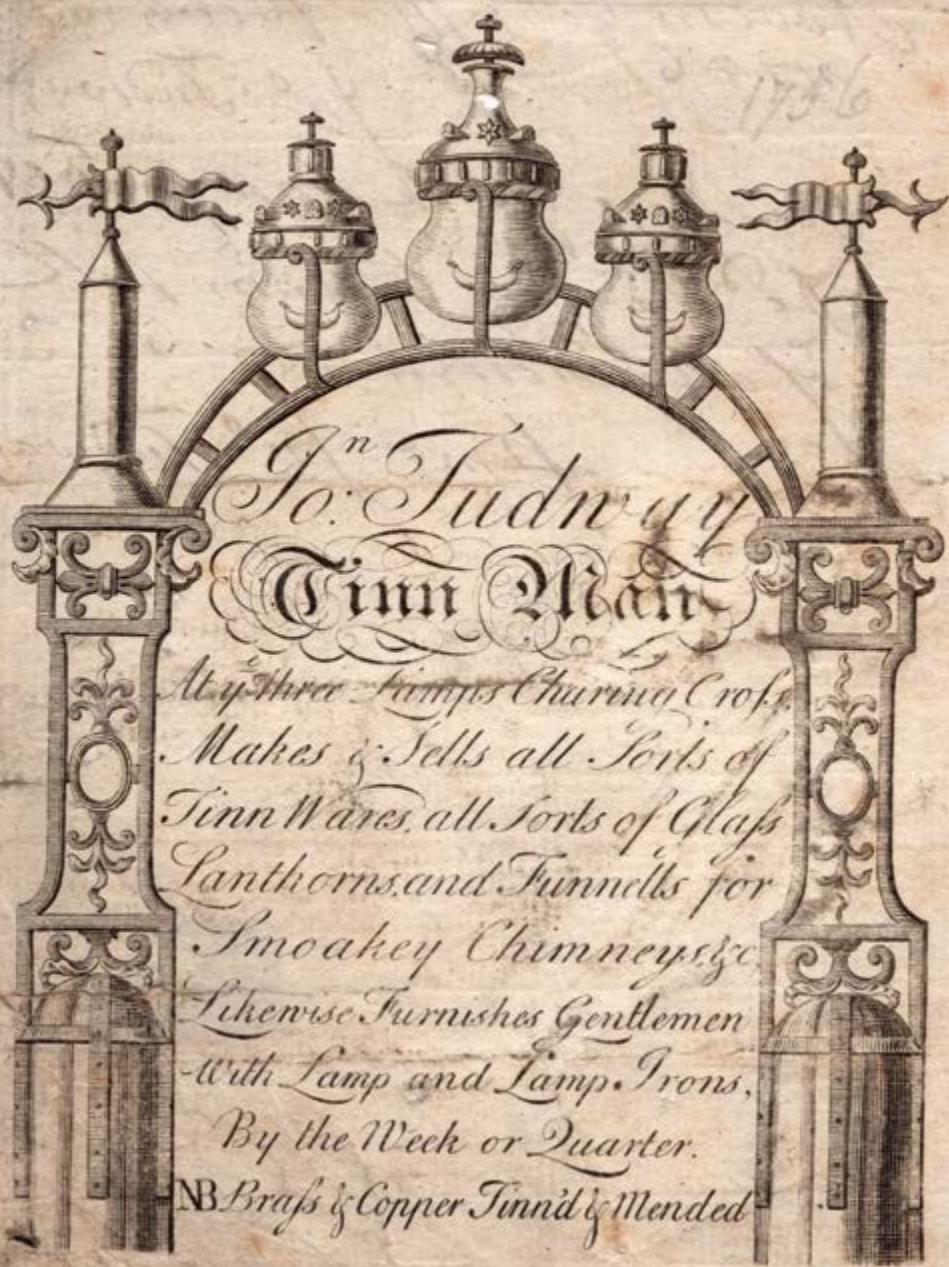 1736
Jo:ⁿ Tudway
Tinn Man
At yᵉ three Lamps Charing Croſs.
Makes & Sells all Sorts of
Tinn Wares, all sorts of Glaſs
Lanthorns, and Funnells for
Smoakey Chimneys, &c.
Likewise Furnishes Gentlemen
With Lamp and Lamp Irons,
By the Week or Quarter.
NB Braſs & Copper Tinn'd & Mended